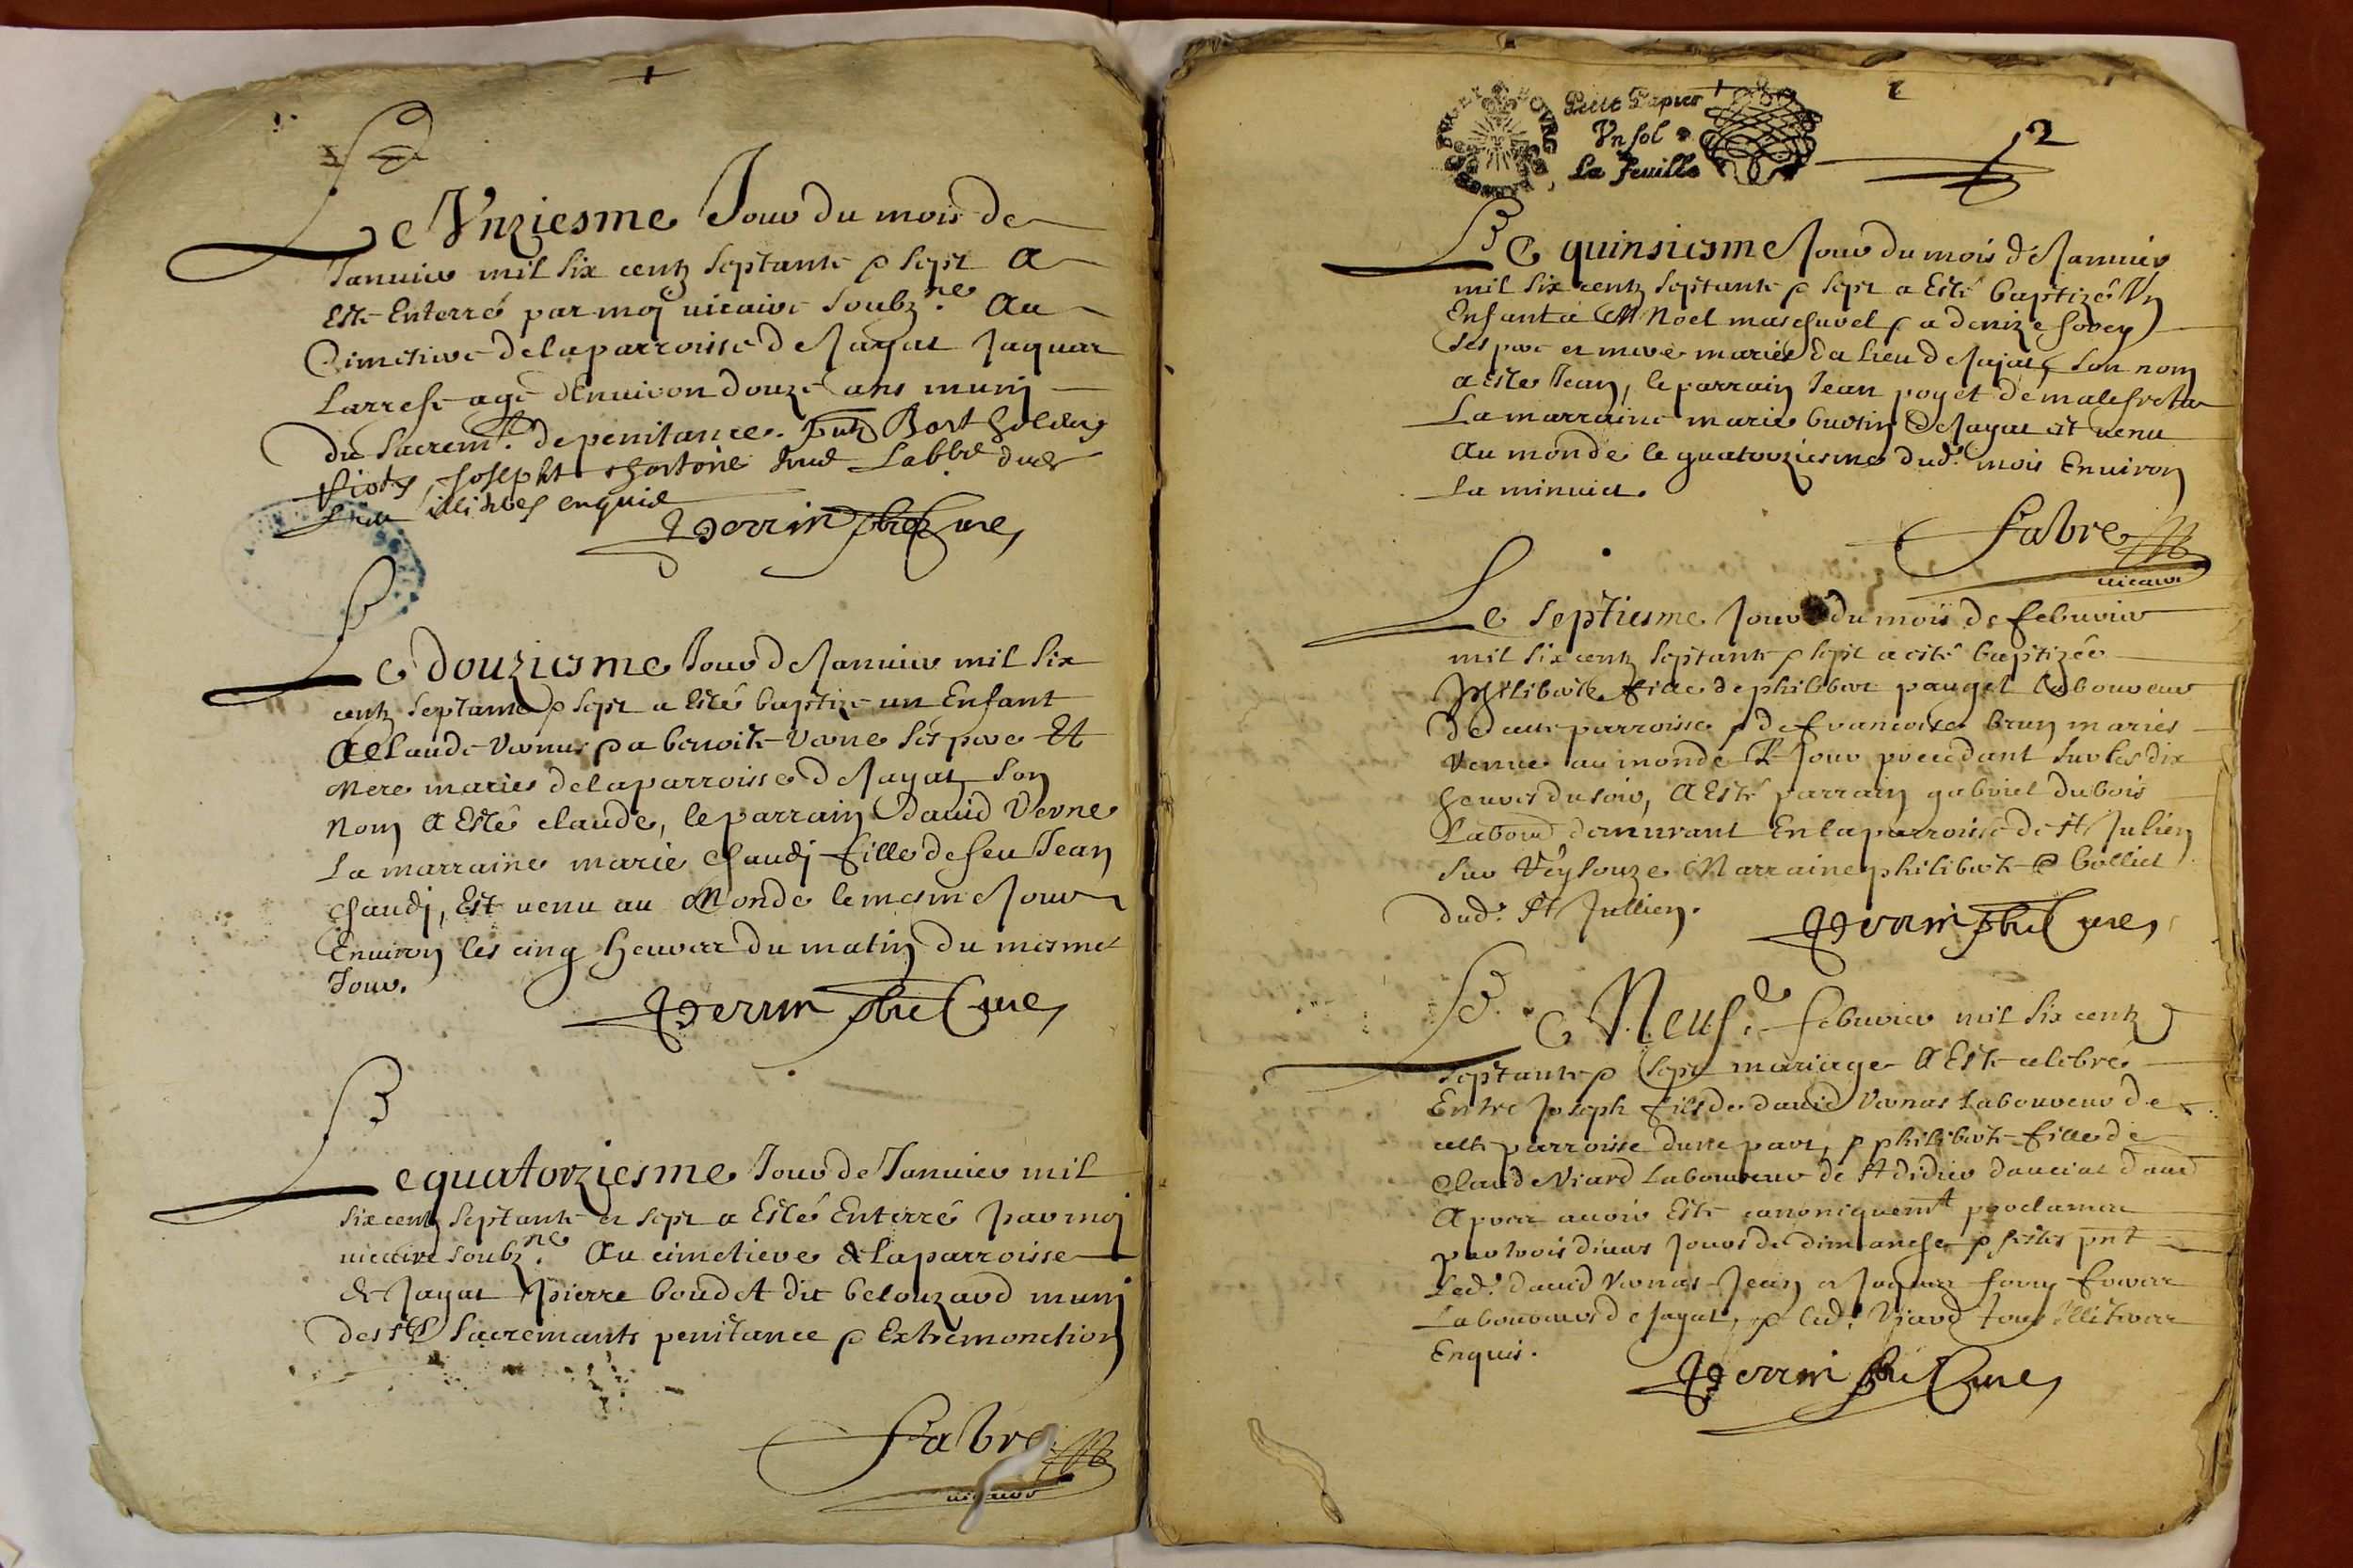 Le Vnziesme Jour du mois de
Januier mil six centz septante & sept A
Esté Enterré par moy vicaire soubz.né Au
Cimetiere de la parroisse de Jayat Jaques
Larresé agé denuiron douze ans muny
du sacrem.t de penitance.
Joseph Labbé
illitres enquis
Perrin pbre Cure
Le douziesme Jour de Januier mil six
centz septante & sept a Esté baptizé un Enfant
A Claude Vernus & a benoite Verne ses pere Et
Mere mariés de la parroisse de Jayat son
Nom A Esté claude, le parrain Dauid Verne
La marraine marie Chaudy fille de feu Jean
Chaudy, Est venu au Monde le mesme Jour
Enuiron les cinq heures du matin du mesme
Jour.
Perrin pbre Cure
Le quatorziesme Jour de Januier mil
six centz septante et sept a Esté Enterré par moy
vicaire soubz.né Au cimetiere de la parroisse
de Jayat pierre boudet dit belouzard muny
des sts sacremants penitance & Extremonction
Fabre
vicaire
Petit Papier
Vn sol
La feuille
2
Le quinsiesme Jour du mois de Januier
mil six centz septante & sept a Esté baptizé Vn
Enfant a Noel & a denize
ses pere et mere mariés du lieu de Jajat, son nom
a esté Jean, le parrain Jean poget de
La marraine marie de Jayat est venu
Au monde le quatorziesme dud. mois Enuiron
La minuict.
Fabre
vicaire
Le septiesme Jour du mois de feburier
mil six centz septante & sept a esté baptizée
philiberte fille de philibert pauget laboureur
de cette parroisse & de francoise brun mariés
Venue au monde le Jour precedant sur les dix
heures du soir, A Esté parrain gabriel dubois
Labour.r demeurant En la parroisse de St Julien
sur Veysouze Marraine philiberte bolliet
dud. St Jullien.
Perrin pbre Cure
Le Neuf.e feburier mil six centz
septante & sept mariage A Esté celebré
Entre Joseph fils de dauid Vernas Laboureur de
cette parroisse dune part, & philiberte fille de
Claude Viard Laboureur de St didier dauciat dautre
Apres auoir Esté canoniquem.t proclamez
par trois diuers Jours de dimanche & festes pnt
Led. dauid Vernas Jean et Jaques freres
Laboureurs de Jayat, & led. Viard tous illitres
Enquis.
Perrin pbre Cure